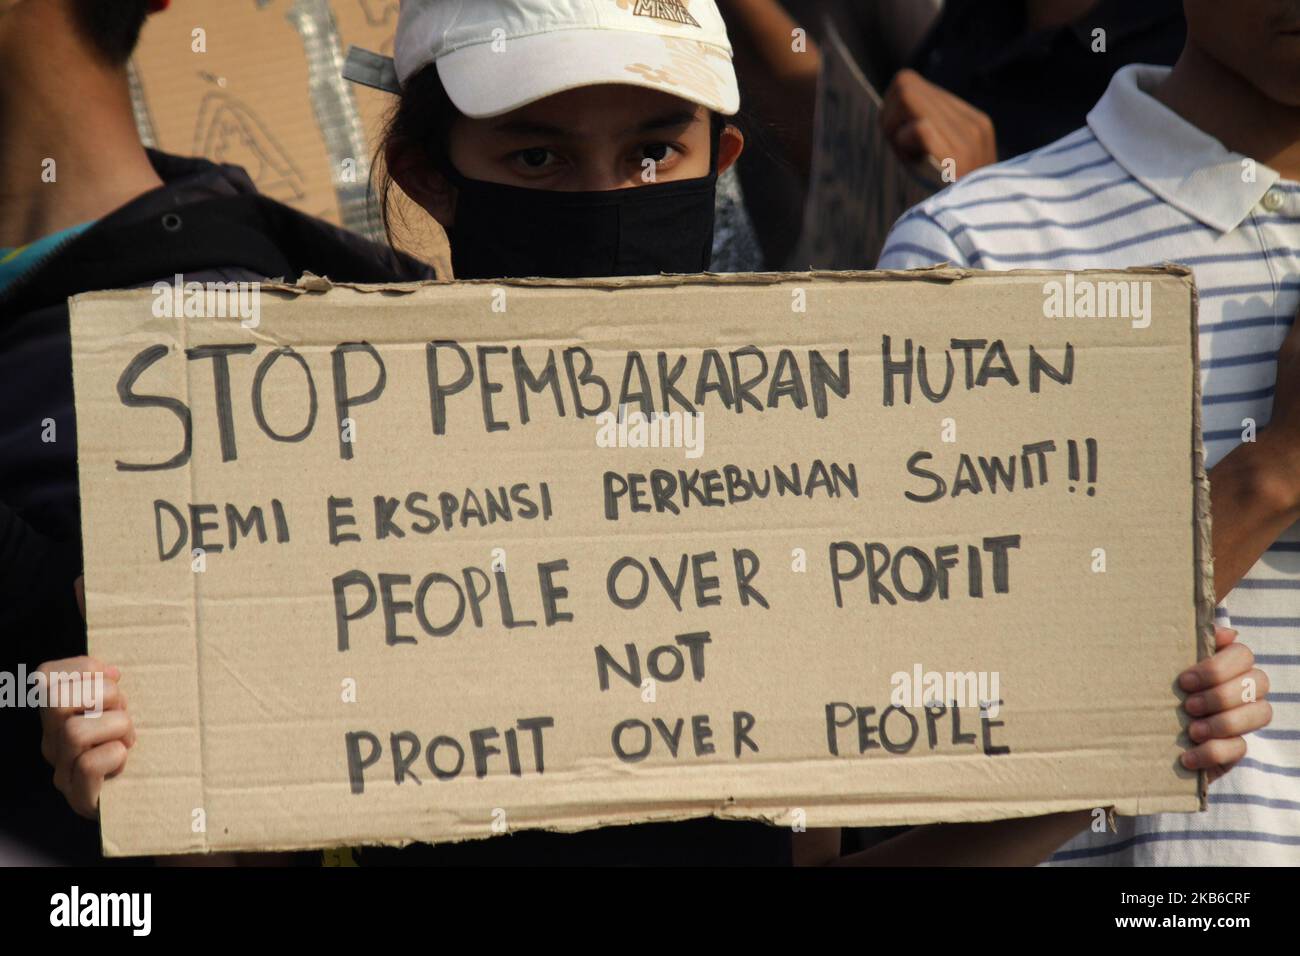 STOP PEMBAKARAN HUTAN
DEMI EKSPANSI PERKEBUNAN SAWIT!!
PEOPLE OVER PROFIT
NOT
PROFIT OVER PEOPLE
alamy
Image ID: 2KB6CRF
www.alamy.com